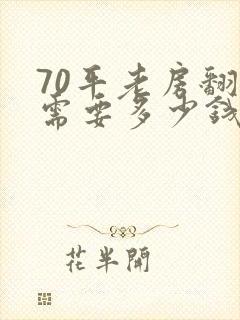 70平老房翻
需要多少钱
花半開